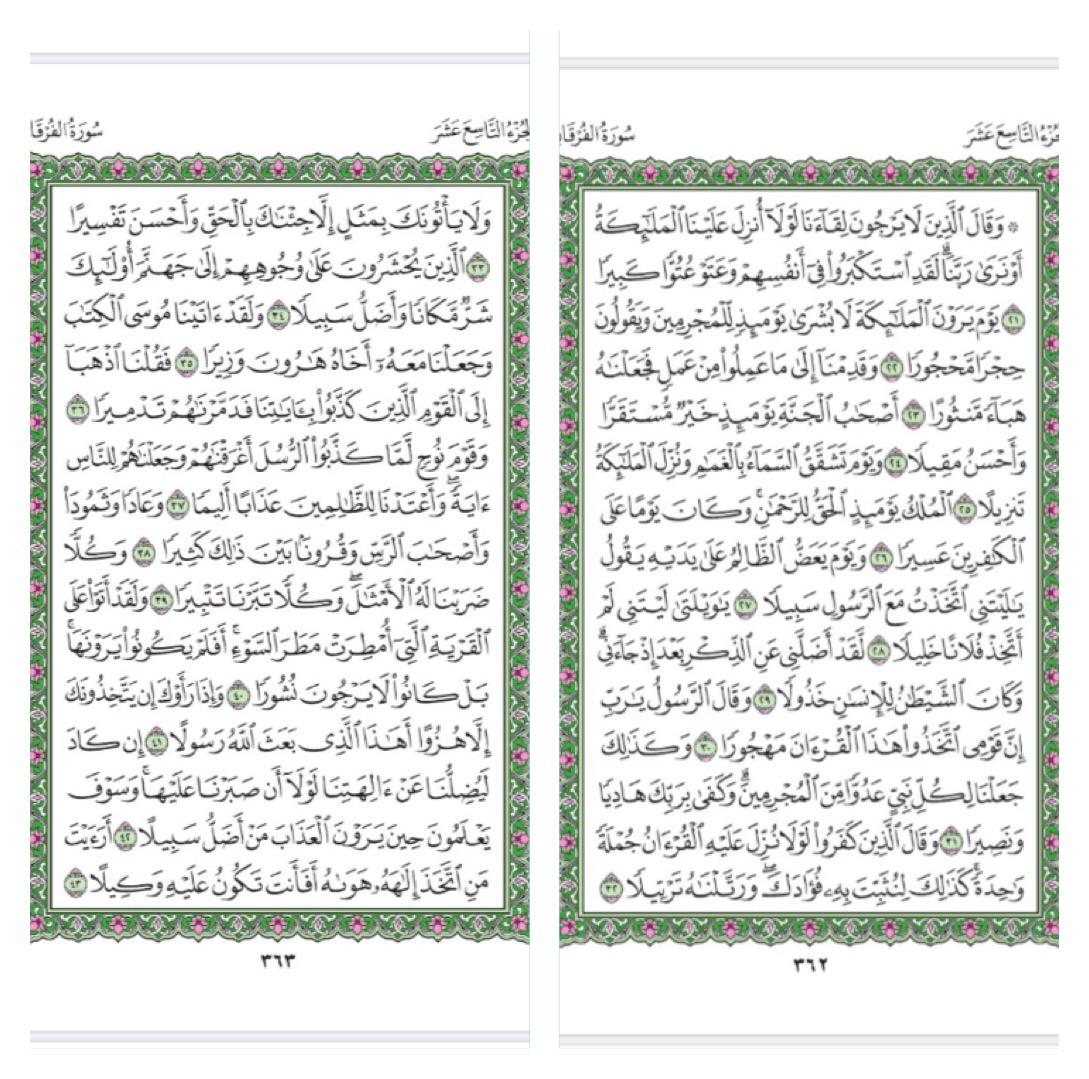 الجزء التاسع عشر
سورة الفرقان
۞ وَقَالَ ٱلَّذِينَ لَا يَرْجُونَ لِقَآءَنَا لَوْلَآ أُنزِلَ عَلَيْنَا ٱلْمَلَـٰٓئِكَةُ
أَوْ نَرَىٰ رَبَّنَا ۗ لَقَدِ ٱسْتَكْبَرُوا۟ فِىٓ أَنفُسِهِمْ وَعَتَوْ عُتُوًّا كَبِيرًا
٢١ يَوْمَ يَرَوْنَ ٱلْمَلَـٰٓئِكَةَ لَا بُشْرَىٰ يَوْمَئِذٍ لِّلْمُجْرِمِينَ وَيَقُولُونَ
حِجْرًا مَّحْجُورًا ٢٢ وَقَدِمْنَآ إِلَىٰ مَا عَمِلُوا۟ مِنْ عَمَلٍ فَجَعَلْنَـٰهُ
هَبَآءً مَّنثُورًا ٢٣ أَصْحَـٰبُ ٱلْجَنَّةِ يَوْمَئِذٍ خَيْرٌ مُّسْتَقَرًّا
وَأَحْسَنُ مَقِيلًا ٢٤ وَيَوْمَ تَشَقَّقُ ٱلسَّمَآءُ بِٱلْغَمَـٰمِ وَنُزِّلَ ٱلْمَلَـٰٓئِكَةُ
تَنزِيلًا ٢٥ ٱلْمُلْكُ يَوْمَئِذٍ ٱلْحَقُّ لِلرَّحْمَـٰنِ ۚ وَكَانَ يَوْمًا عَلَى
ٱلْكَـٰفِرِينَ عَسِيرًا ٢٦ وَيَوْمَ يَعَضُّ ٱلظَّالِمُ عَلَىٰ يَدَيْهِ يَقُولُ
يَـٰلَيْتَنِى ٱتَّخَذْتُ مَعَ ٱلرَّسُولِ سَبِيلًا ٢٧ يَـٰوَيْلَتَىٰ لَيْتَنِى لَمْ
أَتَّخِذْ فُلَانًا خَلِيلًا ٢٨ لَّقَدْ أَضَلَّنِى عَنِ ٱلذِّكْرِ بَعْدَ إِذْ جَآءَنِى ۗ
وَكَانَ ٱلشَّيْطَـٰنُ لِلْإِنسَـٰنِ خَذُولًا ٢٩ وَقَالَ ٱلرَّسُولُ يَـٰرَبِّ
إِنَّ قَوْمِى ٱتَّخَذُوا۟ هَـٰذَا ٱلْقُرْءَانَ مَهْجُورًا ٣٠ وَكَذَٰلِكَ
جَعَلْنَا لِكُلِّ نَبِىٍّ عَدُوًّا مِّنَ ٱلْمُجْرِمِينَ ۗ وَكَفَىٰ بِرَبِّكَ هَادِيًا
وَنَصِيرًا ٣١ وَقَالَ ٱلَّذِينَ كَفَرُوا۟ لَوْلَا نُزِّلَ عَلَيْهِ ٱلْقُرْءَانُ جُمْلَةً
وَٰحِدَةً ۚ كَذَٰلِكَ لِنُثَبِّتَ بِهِۦ فُؤَادَكَ ۖ وَرَتَّلْنَـٰهُ تَرْتِيلًا ٣٢
٣٦٢
الجزء التاسع عشر
سورة الفرقان
وَلَا يَأْتُونَكَ بِمَثَلٍ إِلَّا جِئْنَـٰكَ بِٱلْحَقِّ وَأَحْسَنَ تَفْسِيرًا
٣٣ ٱلَّذِينَ يُحْشَرُونَ عَلَىٰ وُجُوهِهِمْ إِلَىٰ جَهَنَّمَ أُو۟لَـٰٓئِكَ
شَرٌّ مَّكَانًا وَأَضَلُّ سَبِيلًا ٣٤ وَلَقَدْ ءَاتَيْنَا مُوسَى ٱلْكِتَـٰبَ
وَجَعَلْنَا مَعَهُۥٓ أَخَاهُ هَـٰرُونَ وَزِيرًا ٣٥ فَقُلْنَا ٱذْهَبَآ
إِلَى ٱلْقَوْمِ ٱلَّذِينَ كَذَّبُوا۟ بِـَٔايَـٰتِنَا فَدَمَّرْنَـٰهُمْ تَدْمِيرًا ٣٦
وَقَوْمَ نُوحٍ لَّمَّا كَذَّبُوا۟ ٱلرُّسُلَ أَغْرَقْنَـٰهُمْ وَجَعَلْنَـٰهُمْ لِلنَّاسِ
ءَايَةً ۖ وَأَعْتَدْنَا لِلظَّـٰلِمِينَ عَذَابًا أَلِيمًا ٣٧ وَعَادًا وَثَمُودَا۟
وَأَصْحَـٰبَ ٱلرَّسِّ وَقُرُونًۢا بَيْنَ ذَٰلِكَ كَثِيرًا ٣٨ وَكُلًّا
ضَرَبْنَا لَهُ ٱلْأَمْثَـٰلَ ۖ وَكُلًّا تَبَّرْنَا تَتْبِيرًا ٣٩ وَلَقَدْ أَتَوْا۟ عَلَى
ٱلْقَرْيَةِ ٱلَّتِىٓ أُمْطِرَتْ مَطَرَ ٱلسَّوْءِ ۚ أَفَلَمْ يَكُونُوا۟ يَرَوْنَهَا ۚ
بَلْ كَانُوا۟ لَا يَرْجُونَ نُشُورًا ٤٠ وَإِذَا رَأَوْكَ إِن يَتَّخِذُونَكَ
إِلَّا هُزُوًا أَهَـٰذَا ٱلَّذِى بَعَثَ ٱللَّهُ رَسُولًا ٤١ إِن كَادَ
لَيُضِلُّنَا عَنْ ءَالِهَتِنَا لَوْلَآ أَن صَبَرْنَا عَلَيْهَا ۚ وَسَوْفَ
يَعْلَمُونَ حِينَ يَرَوْنَ ٱلْعَذَابَ مَنْ أَضَلُّ سَبِيلًا ٤٢ أَرَءَيْتَ
مَنِ ٱتَّخَذَ إِلَـٰهَهُۥ هَوَىٰهُ أَفَأَنتَ تَكُونُ عَلَيْهِ وَكِيلًا ٤٣
٣٦٣